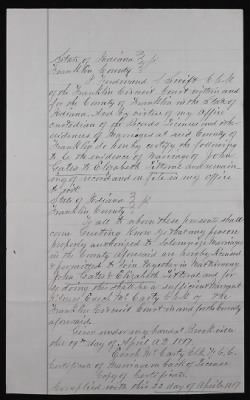 State of Indiana
Franklin County
I Ferdinand S Swift Clerk
of the Franklin Circuit Court within and
for the County of Franklin in the State of
Indiana And by virtue of my Office
custodian of the Records License and
evidences of Marriages at said County of
Franklin do hereby certify the following
to be the evidence of Marriage of John
Cates to Elizabeth and remain
ing of record and on file in my Office
to wit
State of Indiana
Franklin County
To all to whom these presents shall
come Greeting Know ye that any person
properly authorized to Solemnize Marriages
in the County aforesaid are hereby licensed
& permitted to join together in Matrimony
John Cates & Elizabeth and for
so doing this shall be a sufficient Warrant
Witness Enoch McCarty Clerk of the
Franklin Circuit Court in and for the County
aforesaid
Given under my hand at Brookville
this day of April A D 1817.
Enoch McCarty Clk F. C. C.
Certificate of Marriage on back of License
Copy of Certificate.
Complied with this 22 day of April 1817